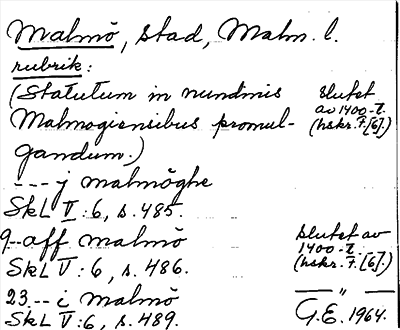 Malmö, stad, Malm. l.
rubrik:
(Statutum in nundinis slutet
av 1400-t.
Malmogiensibus promul- (hskr. F.[6].)
gandum.)
--- j malmöghe
SkL V:6, s. 485.
9.--aff malmö slutet av
1400-t.
SkL V:6, s. 486. (hskr. F.[6].)
23.-- i Malmö — " —
SkL V:6, s. 489. G.E. 1964.